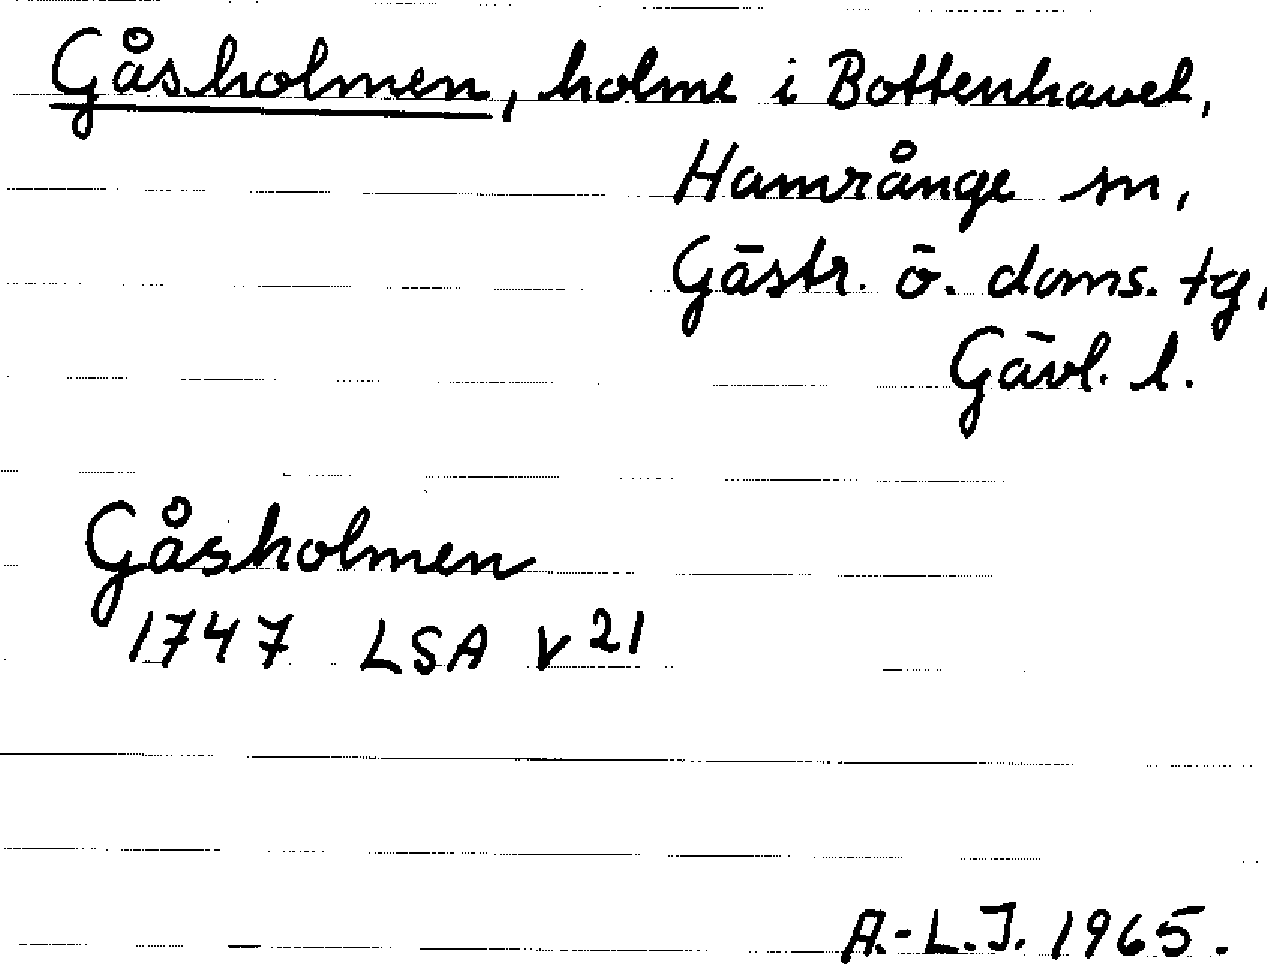 Gåsholmen, holme i Bottenhavet,
Hamrånge sn,
Gästr. ö. doms. tg,
Gävl. l.
Gåsholmen
1747 LSA V 21
A.-L.J. 1965.